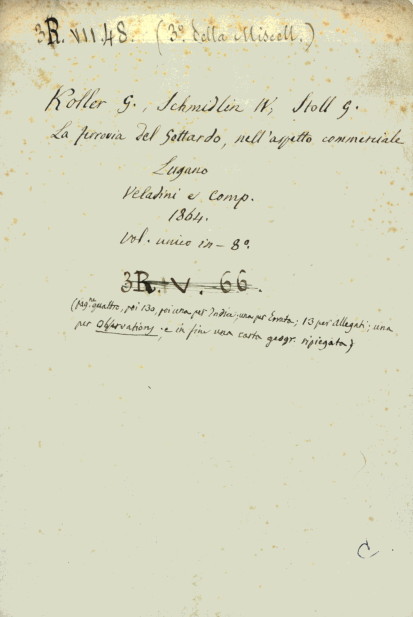 3R.VII.48. (3º della Miscell.)
Koller G., Schmidlin W., Stoll G.
La ferrovia del Gottardo, nell'aspetto commerciale
Lugano
Veladini e Comp.
1864.
Vol. unico in-8º.
3R.V.66.
(pag.ⁿᵉ quattro, poi 130, poi una per Indice; una per Errata; 13 per Allegati; una
per Observations; e in fine una carta geogr. ripiegata)
C